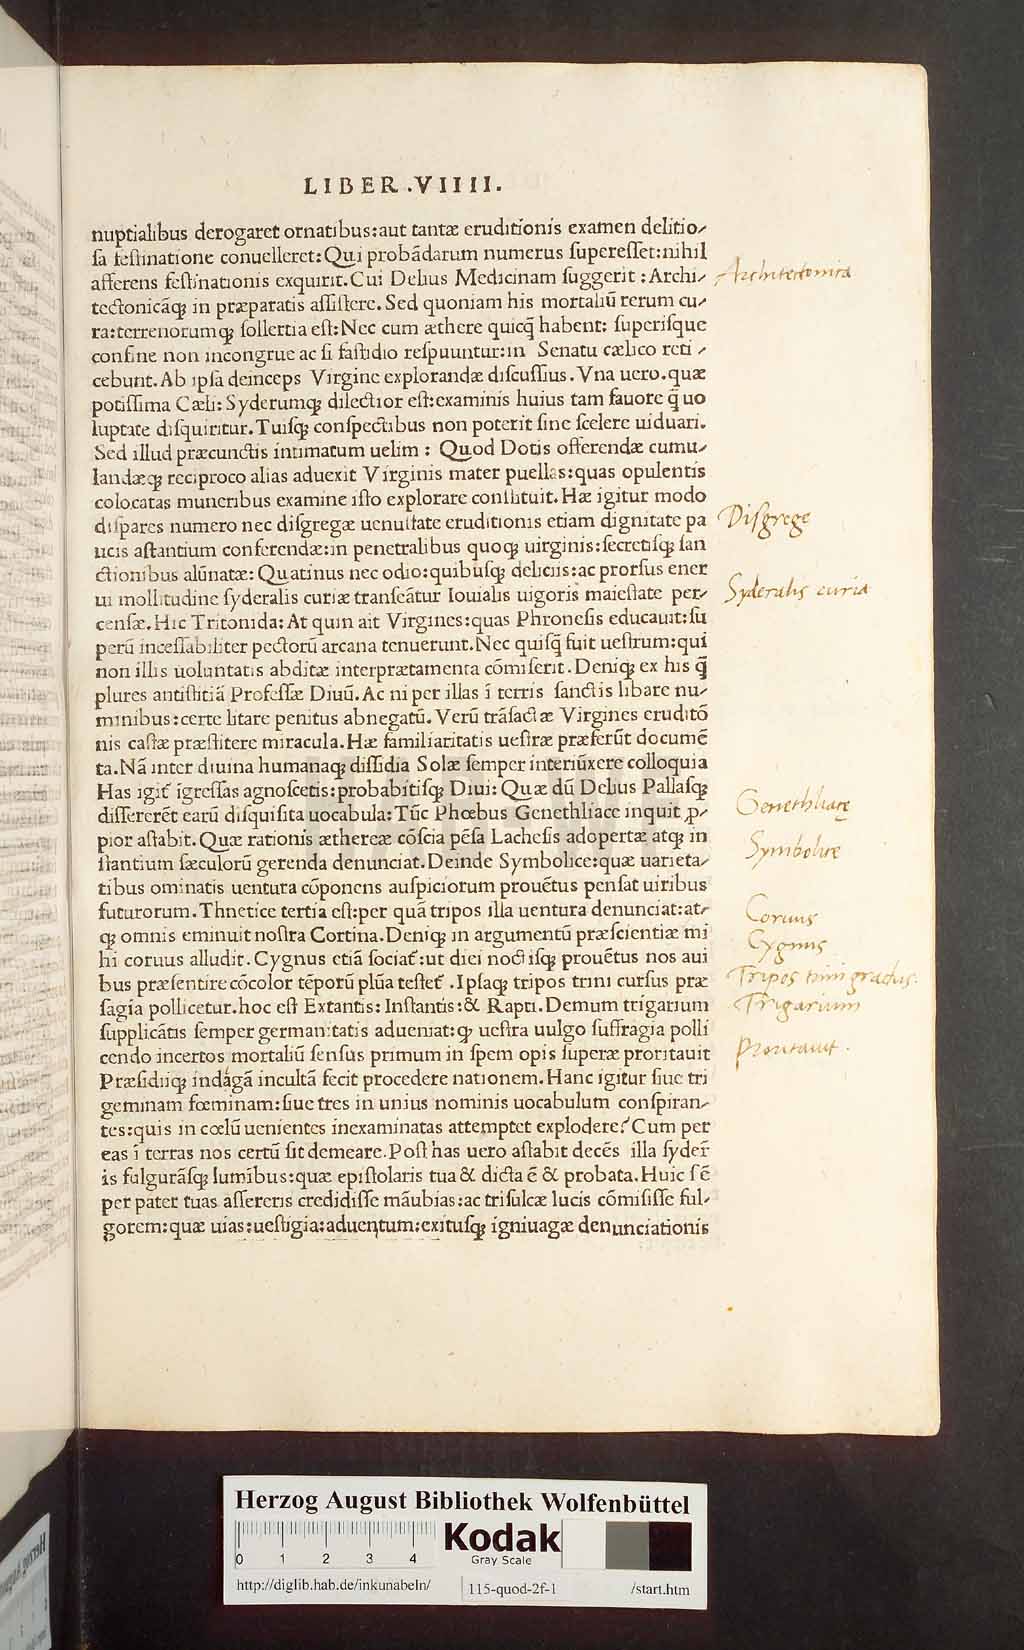 LIBER .VIIII.
nuptialibus derogaret ornatibus:aut tantæ eruditionis examen delitio-
sa festinatione conuelleret:Qui probādarum numerus superesset:nihil
afferens festinationis exquirit.Cui Delius Medicinam suggerit :Archi-
tectonicāq; in præparatis assistere. Sed quoniam his mortaliū rerum cu-
ra:terrenorumq; sollertia est:Nec cum æthere quicq̄ habent: superisque
confine non incongrue ac si fastidio respuuntur:in Senatu cælico reti-
cebunt.Ab ipsa deinceps Virgine explorandæ discussius.Vna uero.quæ
potissima Cæli:Syderumq; dilectior est:examinis huius tam fauore q̄ uo
luptate disquiritur.Tuisq; conspectibus non poterit sine scelere uiduari.
Sed illud præcunctis intimatum uelim : Quod Dotis offerendæ cumu-
landæq; reciproco alias aduexit Virginis mater puellas:quas opulentis
colocatas muneribus examine isto explorare constituit.Hæ igitur modo
dispares numero nec disgregæ uenustate eruditionis etiam dignitate pa
ucis astantium conferendæ:in penetralibus quoq; uirginis:secretisq; san
ctionibus alūnatæ:Quatinus nec odio:quibusq; deliciis:ac prorsus ener
ui mollitudine syderalis curiæ transeātur Iouialis uigoris maiestate per-
censæ.Hic Tritonida:At quin ait Virgines:quas Phronesis educauit:su
perū incessabiliter pectorū arcana tenuerunt.Nec quisq̄ fuit uestrum:qui
non illis uoluntatis abditæ interprætamenta cōmiserit.Deniq; ex his q̄
plures antistitiā Professæ Diuū.Ac ni per illas ī terris sanctis libare nu-
minibus:certe litare penitus abnegatū.Verū trāsactæ Virgines eruditō
nis castæ præstitere miracula.Hæ familiaritatis uestræ præferūt documē
ta.Nā inter diuina humanaq; dissidia Solæ semper interiūxere colloquia
Has igit̄ īgressas agnoscetis:probabitisq; Diui:Quæ dū Delius Pallasq;
differerēt earū disquisita uocabula:Tūc Phœbus Genethliace inquit ꝓ-
pior astabit.Quæ rationis æthereæ cōscia pēsa Lachesis adopertæ atq; in
stantium sæculorū gerenda denunciat.Deinde Symbolice:quæ uarieta-
tibus ominatis uentura cōponens auspiciorum prouētus pensat uiribus
futurorum.Thnetice tertia est:per quā tripos illa uentura denunciat:at-
q; omnis eminuit nostra Cortina.Deniq; in argumentū præscientiæ mi
hi coruus alludit.Cygnus etiā sociat̄:ut diei noctisq; prouētus nos aui
bus præsentire cōcolor tēporū plūa testet̄ .Ipsaq; tripos trini cursus præ
sagia pollicetur.hoc est Extantis:Instantis:& Rapti.Demum trigarium
supplicātis semper germanitatis adueniat:q; uestra uulgo suffragia polli
cendo incertos mortaliū sensus primum in spem opis superæ proritauit
Præsidiiq; indagā incultā fecit procedere nationem.Hanc igitur siue tri
geminam fœminam:siue tres in unius nominis uocabulum conspiran-
tes:quis in cœlū uenientes inexaminatas attemptet explodere?Cum per
eas ī terras nos certū sit demeare.Post has uero astabit decēs illa syder̄
is fulgurāsq; lumībus:quæ epistolaris tua & dicta ē & probata.Huic sē
per pater tuas assereris credidisse māubias:ac trisulcæ lucis cōmisisse ful-
gorem:quæ uias:uestigia:aduentum:exitusq; igniuagæ denunciationis
Architectonica
Disgrege
Syderalis curia
Genethliace
Symbolice
Coruus
Cygnus
Tripos trini gradus.
Trigarium
Proritauit.
Herzog August Bibliothek Wolfenbüttel
0 1 2 3 4
Kodak
Gray Scale
http://diglib.hab.de/inkunabeln/ 115-quod-2f-1 /start.htm